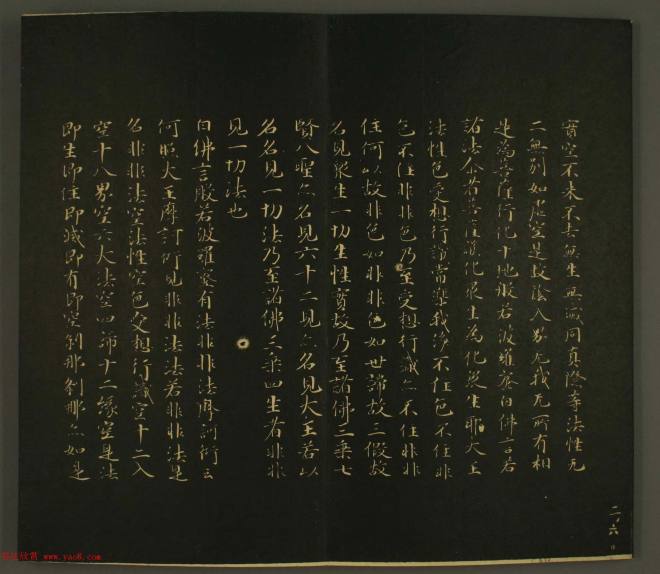 實空不来不去無生無滅同真際等法性无
二無別如虚空是故陰入界无我无所有相
是為菩薩行化十地般若波羅蜜白佛言若
諸法尒者菩薩護化眾生為化眾生耶大王
法性色受想行識常樂我淨不住色不住非
色不住非非色乃至受想行識亦不住非非
住何以故非色如非非色如世諦故三假故
名見眾生一切生性實故乃至諸佛三乗七
賢八聖亦名見六十二見亦名見大王若以
名名見一切法乃至諸佛三乗四生者非非
見一切法也
白佛言般若波羅蜜有法非非法摩訶衍云
何照大王摩訶衍見非非法法若非非法是
名非非法空法性空色受想行識空十二入
空十八界空六大法空四諦十二緣空是法
即生即住即滅即有即空刹那刹那亦如是
二ノ六
www.yac8.com